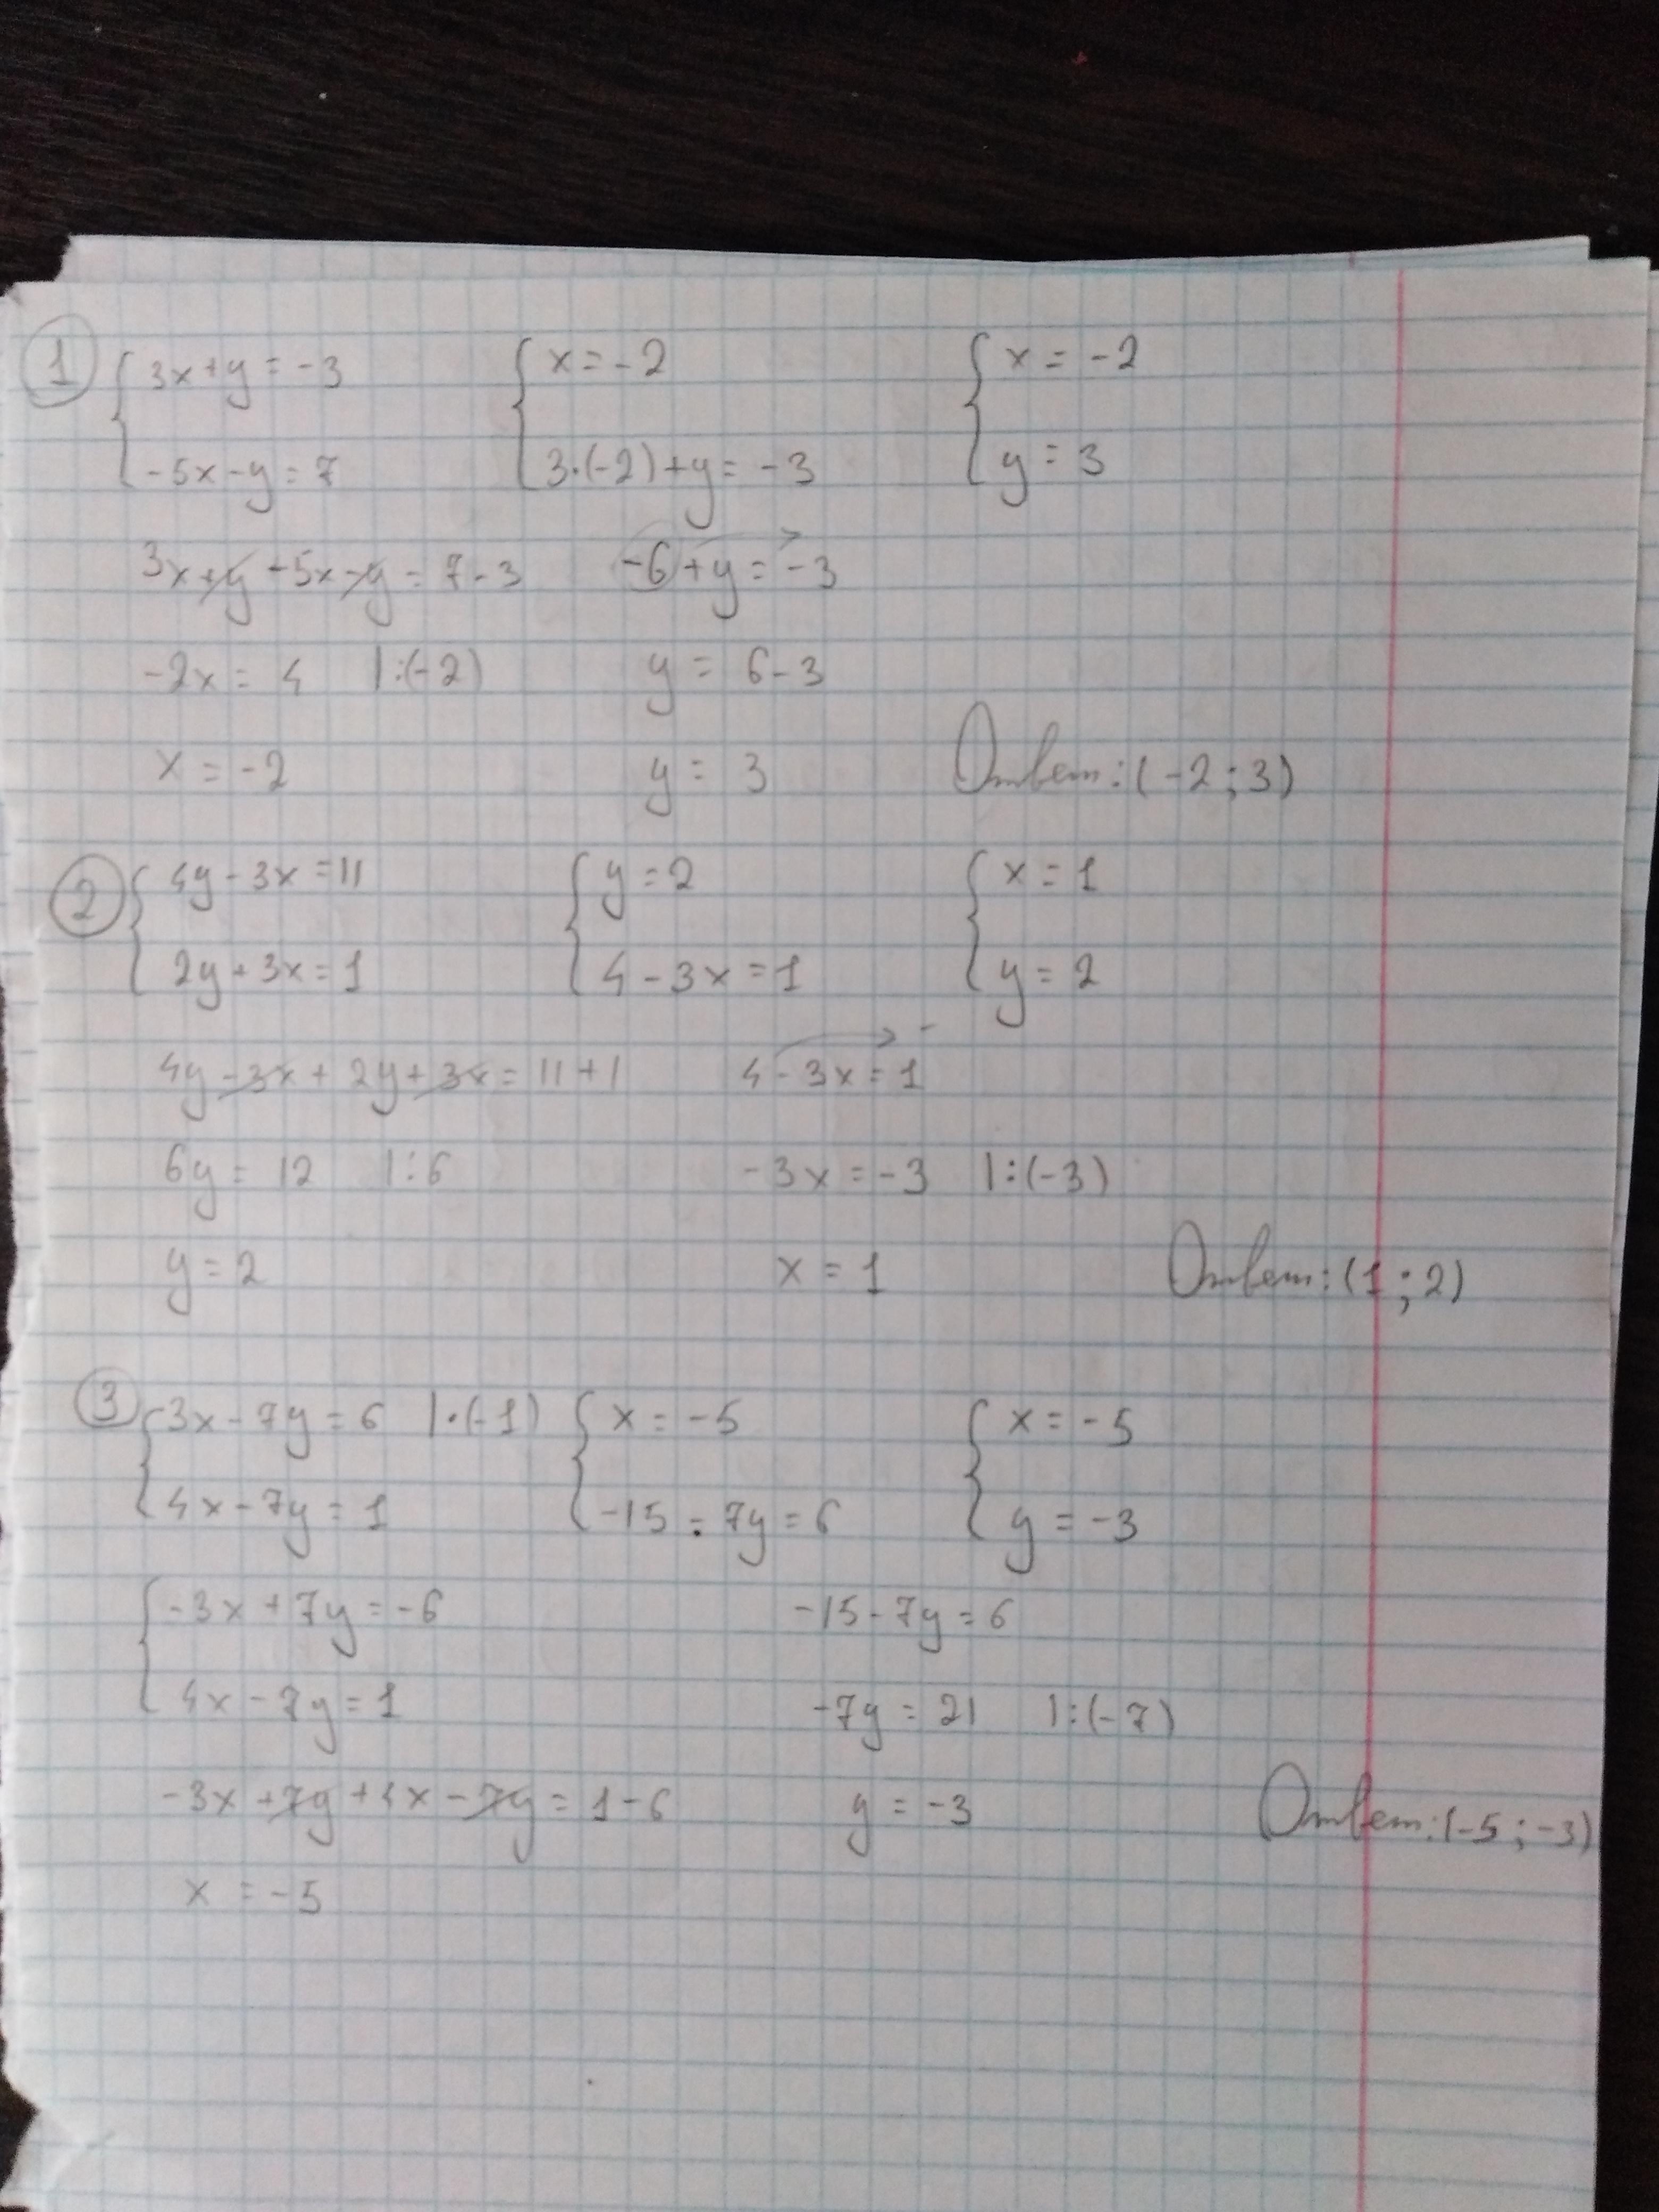 1 3x+y=-3 x=-2 x=-2
-5x-y=7 3·(-2)+y=-3 y=3
3x+y-5x-y=7-3 -6+y=-3
-2x=4 |:(-2) y=6-3
x=-2 y=3 Ответ:(-2;3)
2 4y-3x=11 y=2 x=1
2y+3x=1 4-3x=1 y=2
4y-3x+2y+3x=11+1 4-3x=1 -
6y=12 |:6 -3x=-3 |:(-3)
y=2 x=1 Ответ:(1;2)
3 3x-7y=6 |·(-1) x=-5 x=-5
4x-7y=1 -15-7y=6 y=-3
-3x+7y=-6 -15-7y=6
4x-7y=1 -7y=21 |:(-7)
-3x+7y+4x-7y=1-6 y=-3 Ответ:(-5;-3)
x=-5